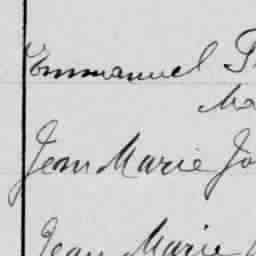 Emmanuel P
Ma
Jean Marie Jo
Jean Marie